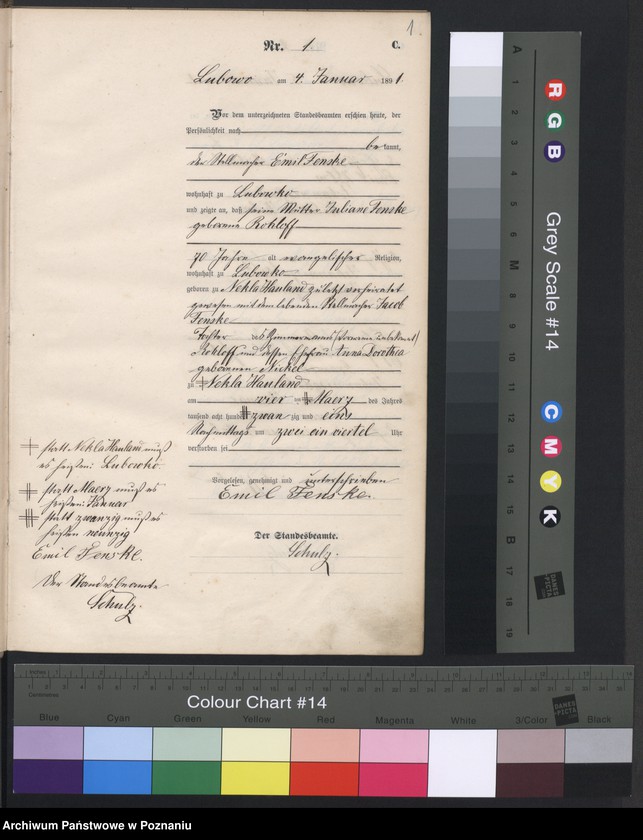 1.
Nr. 1. C.
Lubowo am 4. Januar 1891.
Vor dem unterzeichneten Standesbeamten erschien heute, der
Persönlichkeit nach
bekannt,
der Stellmacher Emil Fenske
wohnhaft zu Lubowko
und zeigte an, daß seine Mutter Juliane Fenske
geborene Rohloff
70 Jahre alt evangelischer Religion,
wohnhaft zu Lubowko
geboren zu Nekla Hauland zuletzt verheiratet
gewesen mit dem lebenden Stellmacher Jacob
Fenske
Tochter des Zimmermanns (Vorname unbekannt)
Rohloff und dessen Ehefrau Anna Dorothea
geborenen Nickel
zu Nekla Hauland
am vier ten Maerz des Jahres
tausend acht hundert zwanzig und eins
Nachmittags um zwei ein viertel Uhr
verstorben sei
Vorgelesen, genehmigt und unterschrieben
Emil Fenske.
Der Standesbeamte.
Schulz.
statt Nekla Hauland muß
es heißen: Lubowko
statt Maerz muß es
heißen: Januar
statt zwanzig muß es
heißen neunzig
Emil Fenske.
Der Standesbeamte
Schulz.
A 1 2 3 4 5 6 M 8 9 10 11 12 13 14 15 B 17 18 19
R G B
Grey Scale #14
C M Y K
DANES
PICTA
Inches
Centimetres
Colour Chart #14
DANES
PICTA
Blue Cyan Green Yellow Red Magenta White 3/Color Black
Archiwum Państwowe w Poznaniu